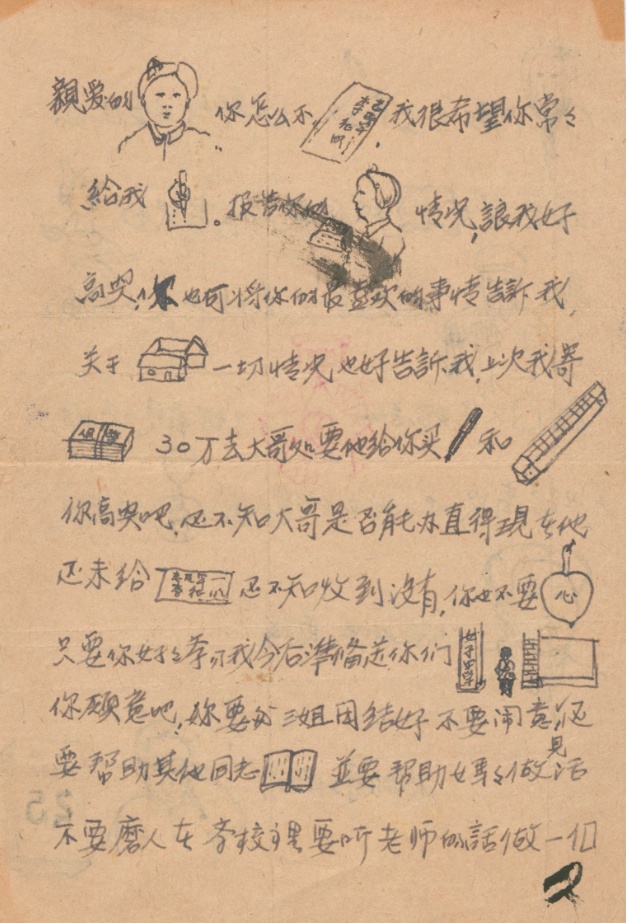 親爱的 你怎么不 我很希望你常々
給我 。报告你的 情况,讓我好
高兴,你也可将你的最喜欢的事情告訴我,
关于 一切情况也好告訴我,上次我寄
30万去大哥处要他给你买 和
你高兴吧,还不知大哥是否能办直得現在他
还未给 还不知收到没有,你也不要 心
只要你好々学习我今后準备送你们 女子中学
你願意吧,妳要 三姐团结好不要闹意见还
要帮助其他同志 並要帮助 做活
不要磨人在学校裡要听老师的話做一個
2
25